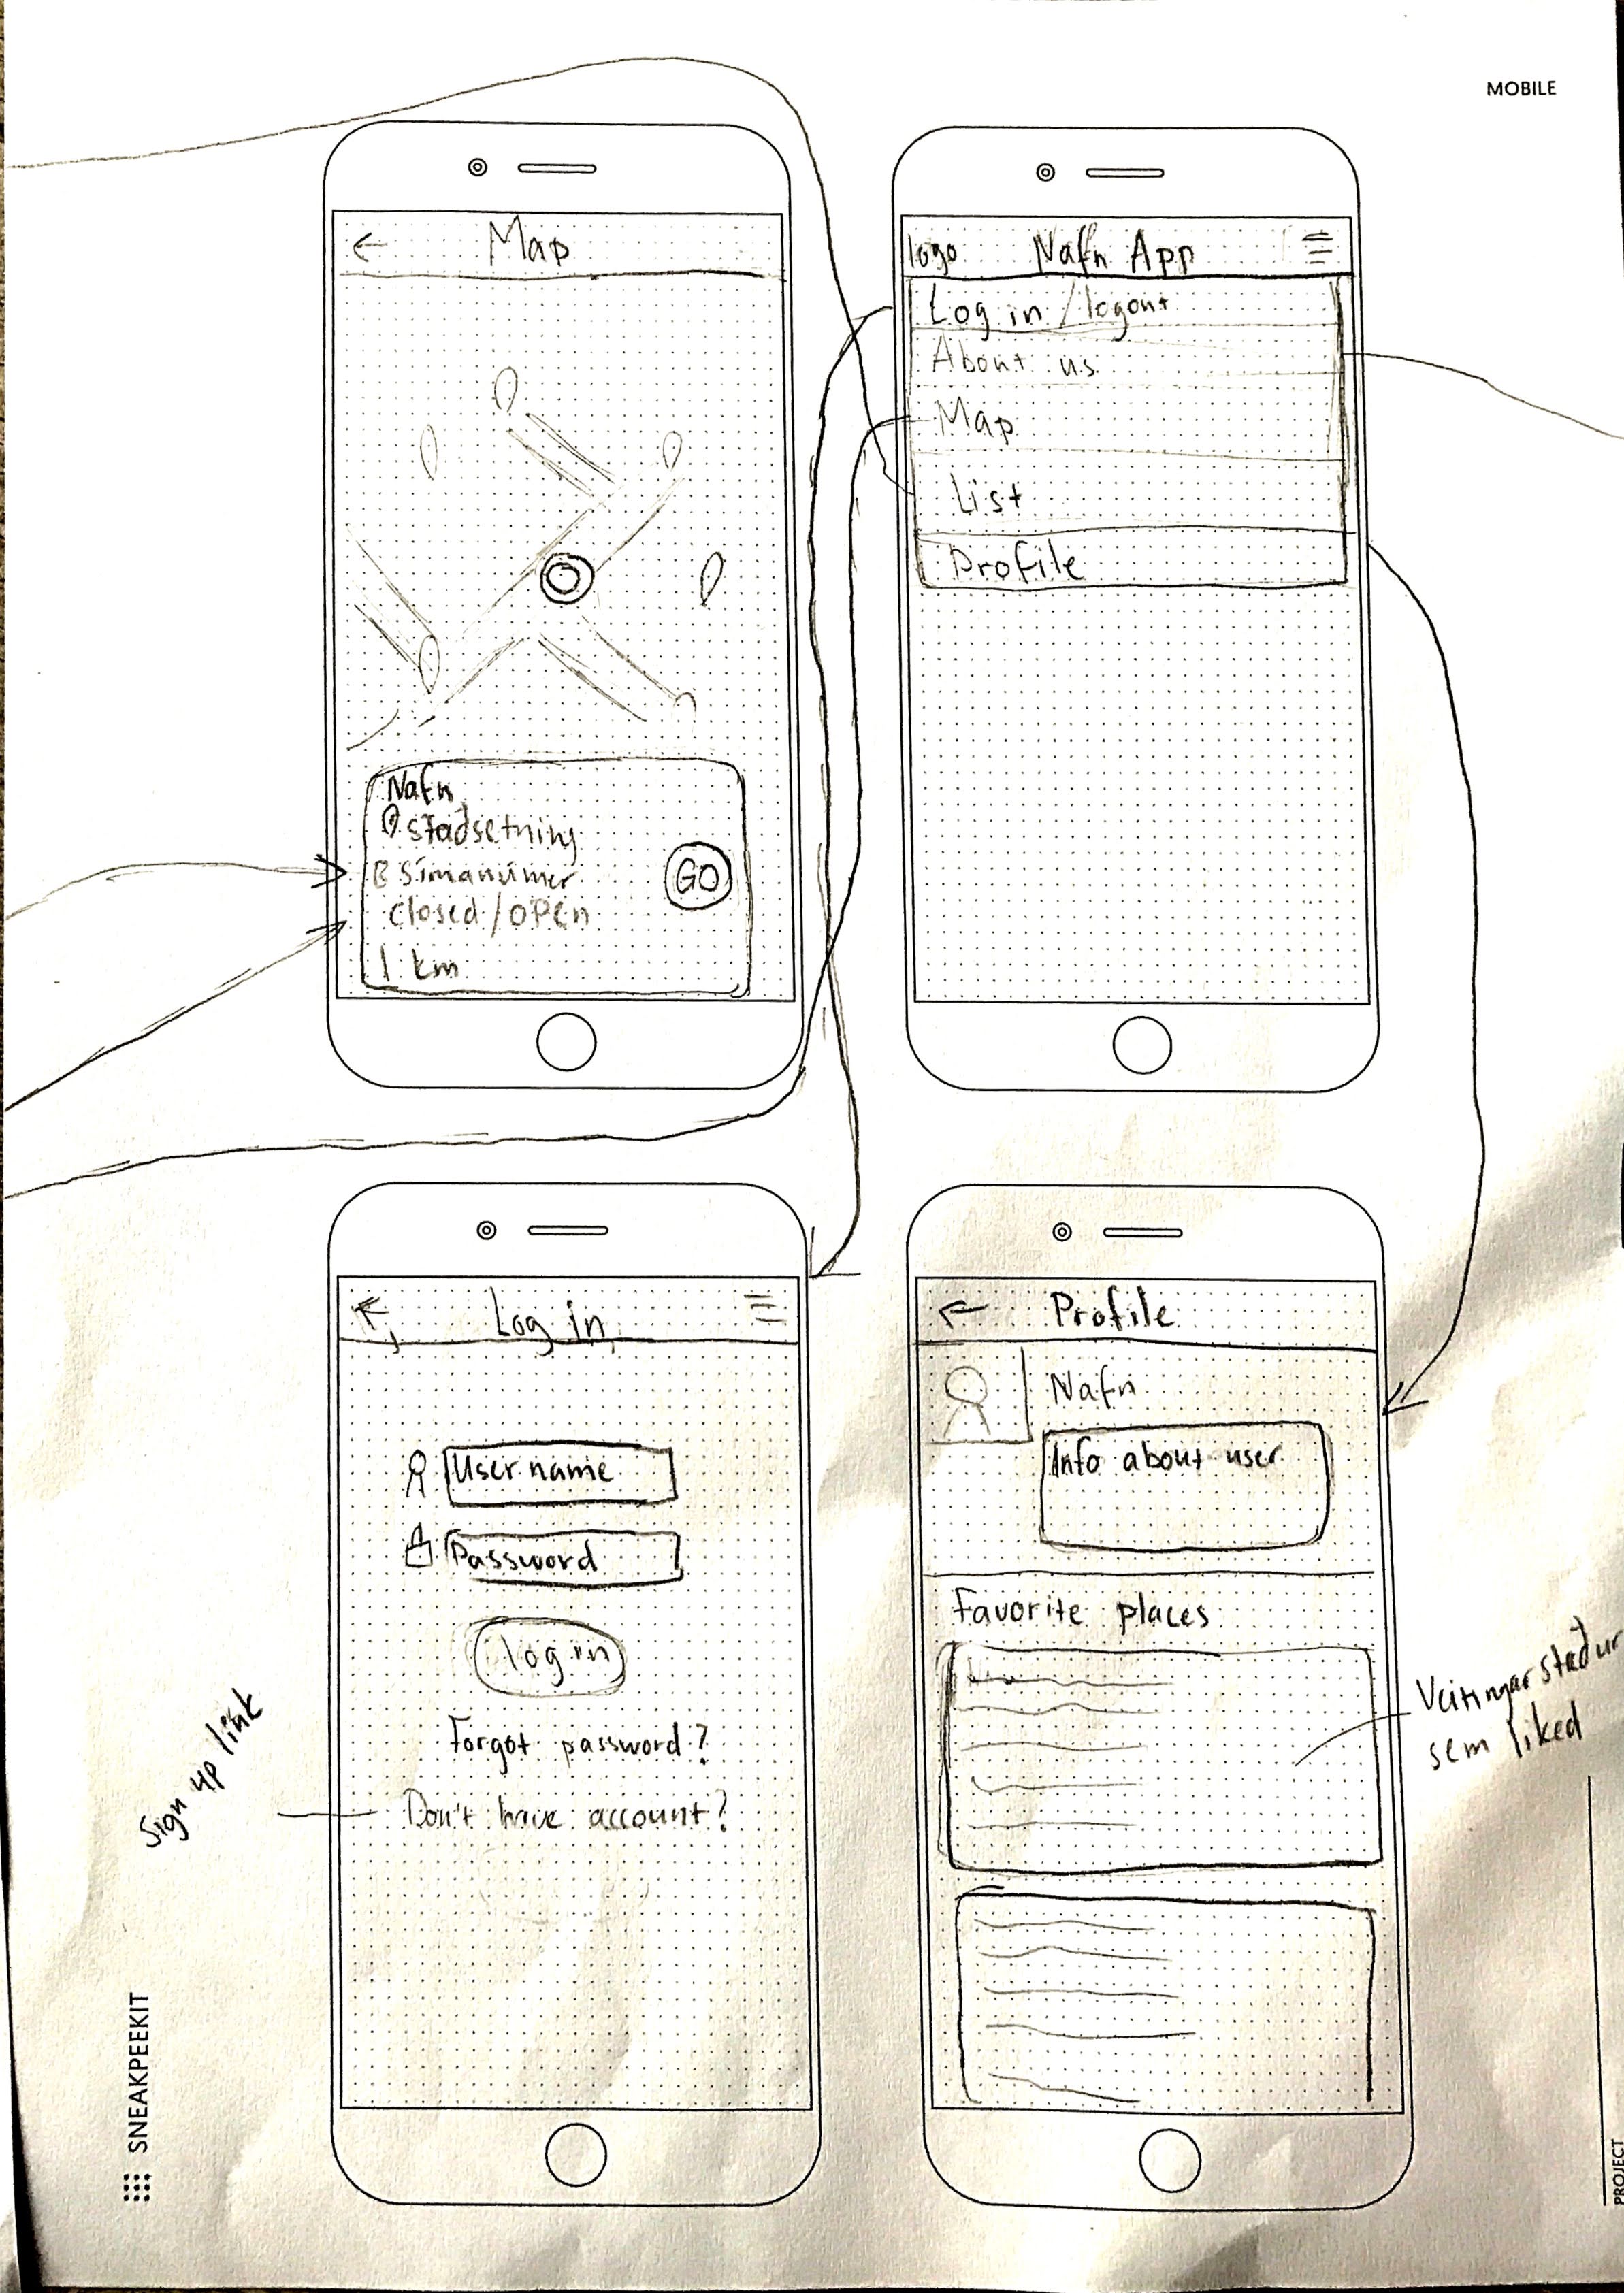 MOBILE
Map
Nafn
staðsetning
Símanúmer
closed/open
1 km
GO
logo Nafn App
Log in / logout
About us
Map
List
Profile
Log in
Username
Password
log in
Forgot password?
Don't have account?
Sign up link
Profile
Nafn
Info about user
Favorite places
Veitingarstaður
sem liked
SNEAKPEEKIT
PROJECT